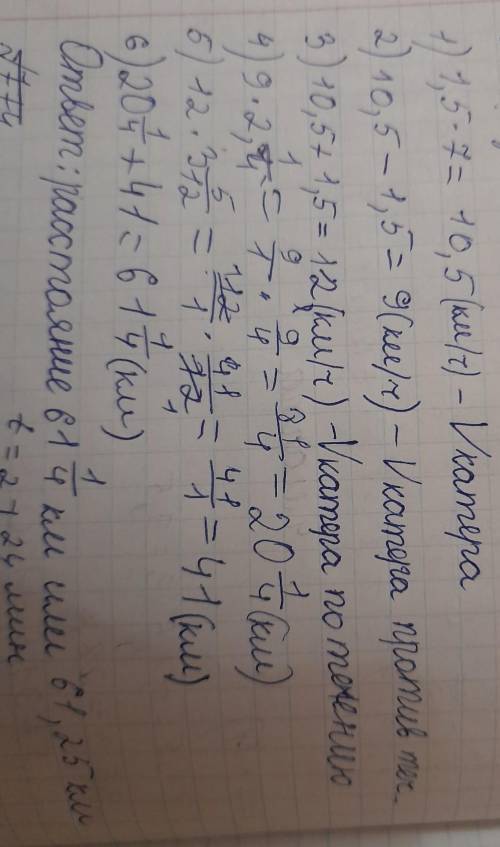 1) 1,5 · 7 = 10,5 (км/ч) – V катера
2) 10,5 – 1,5 = 9 (км/ч) – V катера против теч.
3) 10,5 + 1,5 = 12 (км/ч) – V катера по течению
4) 9 · 2 1/4 = 9/1 · 9/4 = 81/4 = 20 1/4 (км)
5) 12 · 3 5/12 = 12/1 · 41/12 = 41/1 = 41 (км)
6) 20 1/4 + 41 = 61 1/4 (км)
Ответ: расстояние 61 1/4 км или 61,25 км
t = 2 ч 24 мин